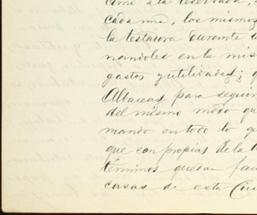 como a la reservada,
cada una, los mismos
la testadora durante l
nandoles en la mis
gastos y utilidades; q
Albaceas para seguir
del mismo modo que
mando en todo lo qu
que son propias de la t
términos quedan fac
casas de esta Ciu